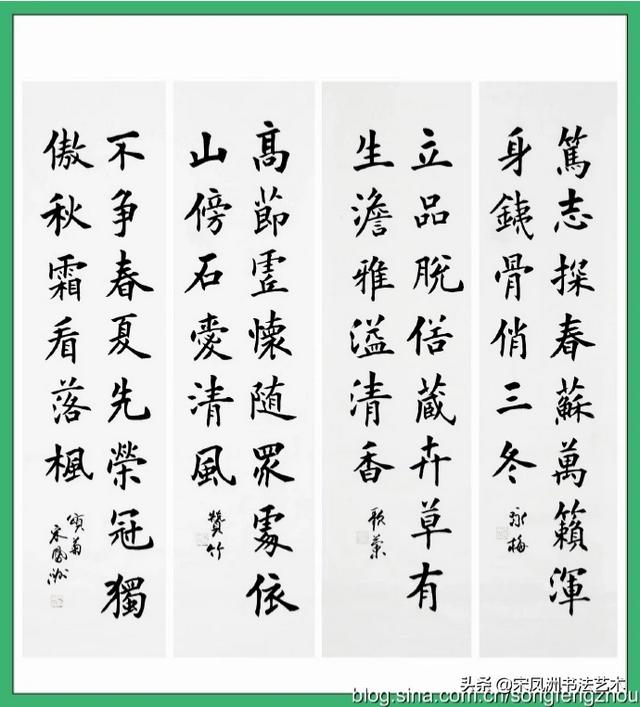 篤志探春蘇萬籟渾
身銕骨俏三冬
詠梅
立品脫俗蔵卉草有
生澹雅溢清香
歌蘭
高節虚懷随眾處依
山傍石愛清風
贊竹
不争春夏先榮冠獨
傲秋霜看落楓
頌菊
宋鳳洲
头条 @宋凤洲书法艺术
blog.sina.com.cn/songfengzhou